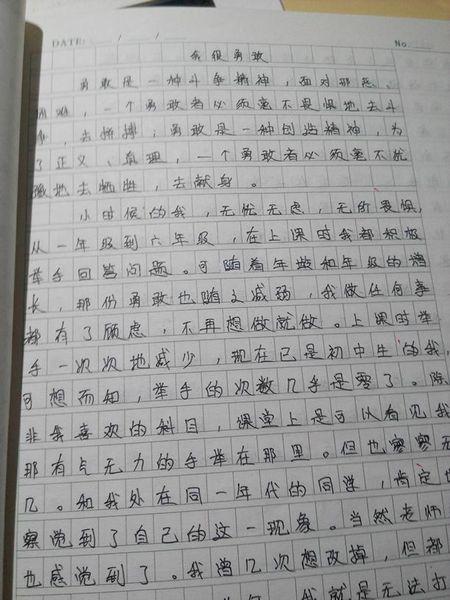 DATE: / /
No.
我很勇敢
勇敢是一种斗争精神，面对邪恶、
一个勇敢者必须毫不畏惧地去斗
争，去拼搏；勇敢是一种创造精神，为
了正义、真理，一个勇敢者必须毫不犹
豫地去牺牲，去献身。
小时候的我，无忧无虑，无所畏惧，
从一年级到六年级，在上课时我都积极
举手回答问题。可随着年龄和年级的增
长，那份勇敢也随之减弱，我做任何事
都有了顾虑，不再想做就做。上课时举
手一次次地减少，现在已是初中生的我，
可想而知，举手的次数几乎是零了。除
非我喜欢的科目，课堂上是可以看见我
那有点无力的手举在那里。但也寥寥无
几。和我处在同一年代的同学，肯定也
察觉到了自己的这一现象。当然老师
也感觉到了。我曾几次想改掉，但都
我就是无法打